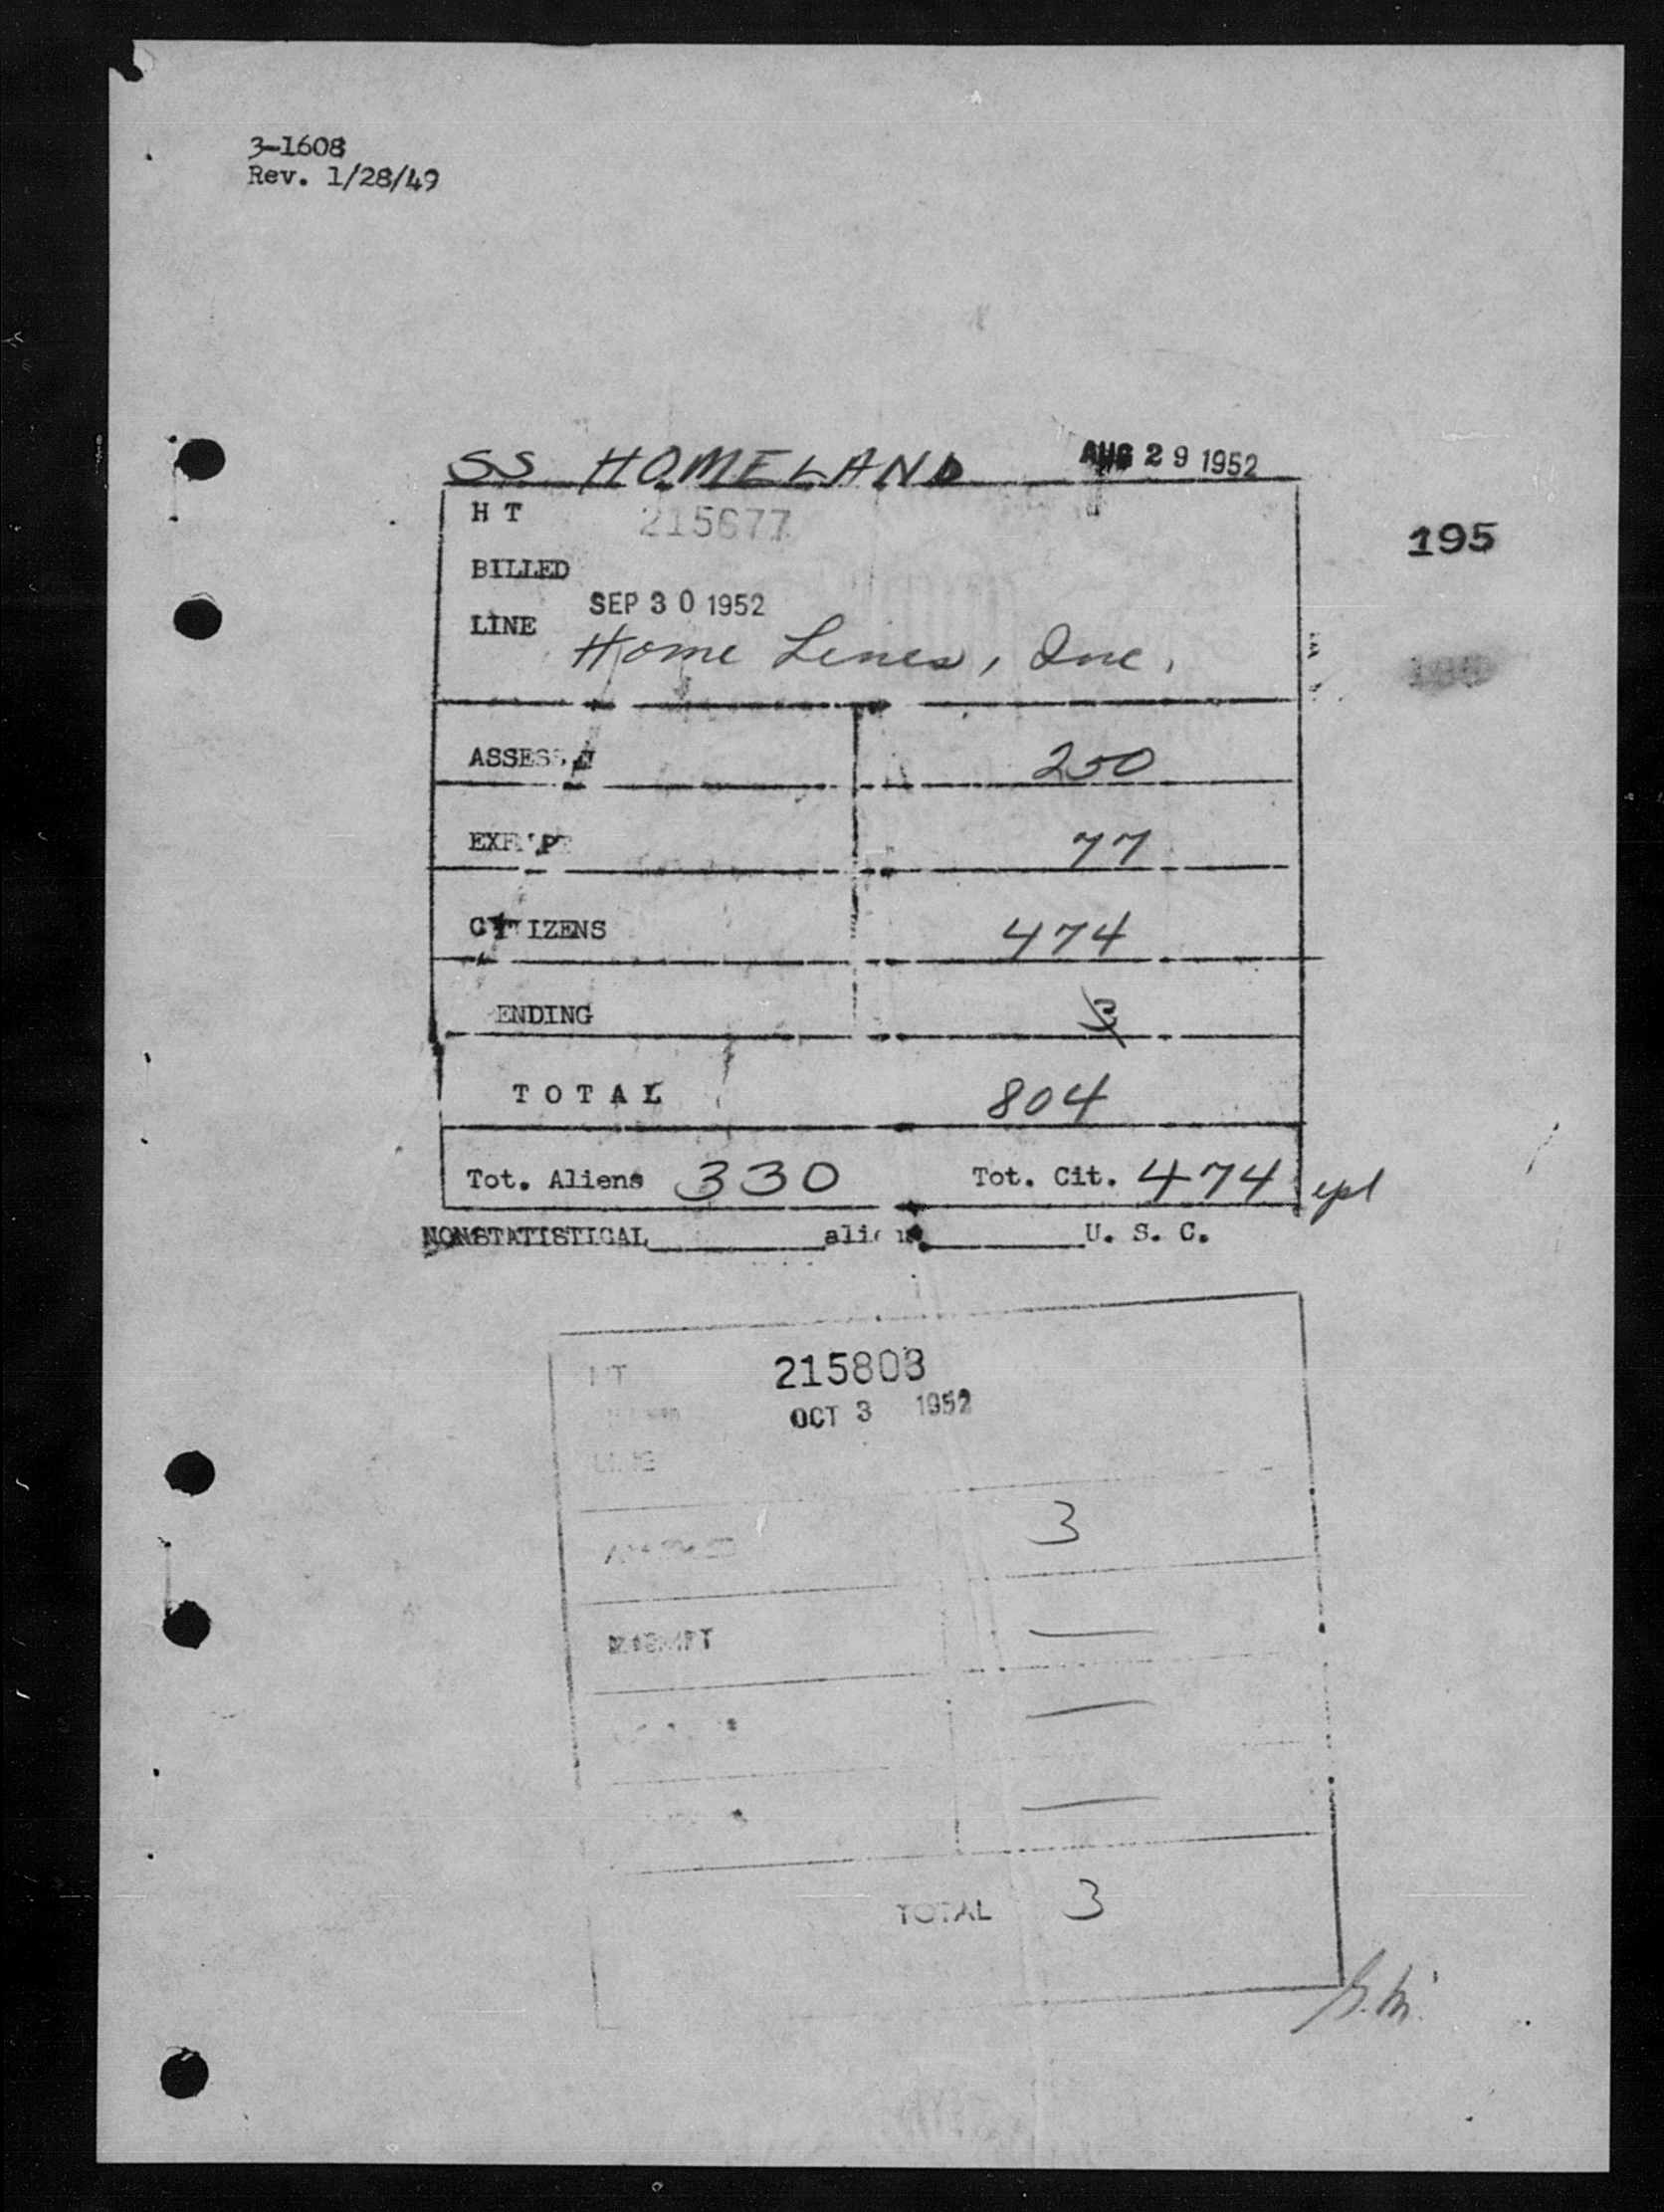 3-1608
Rev. 1/28/49
SS HOMELAND AUG 29 1952
H T 215677
195
BILLED
SEP 30 1952
LINE
Home Lines, Inc.
ASSESSED 250
EXEMPT 77
CITIZENS 474
PENDING 3
TOTAL 804
Tot. Aliens 330 Tot. Cit. 474
NONSTATISTICAL aliens U. S. C.
HT 215803
OCT 3 1952
LINE
3
EXEMPT —
—
—
TOTAL 3